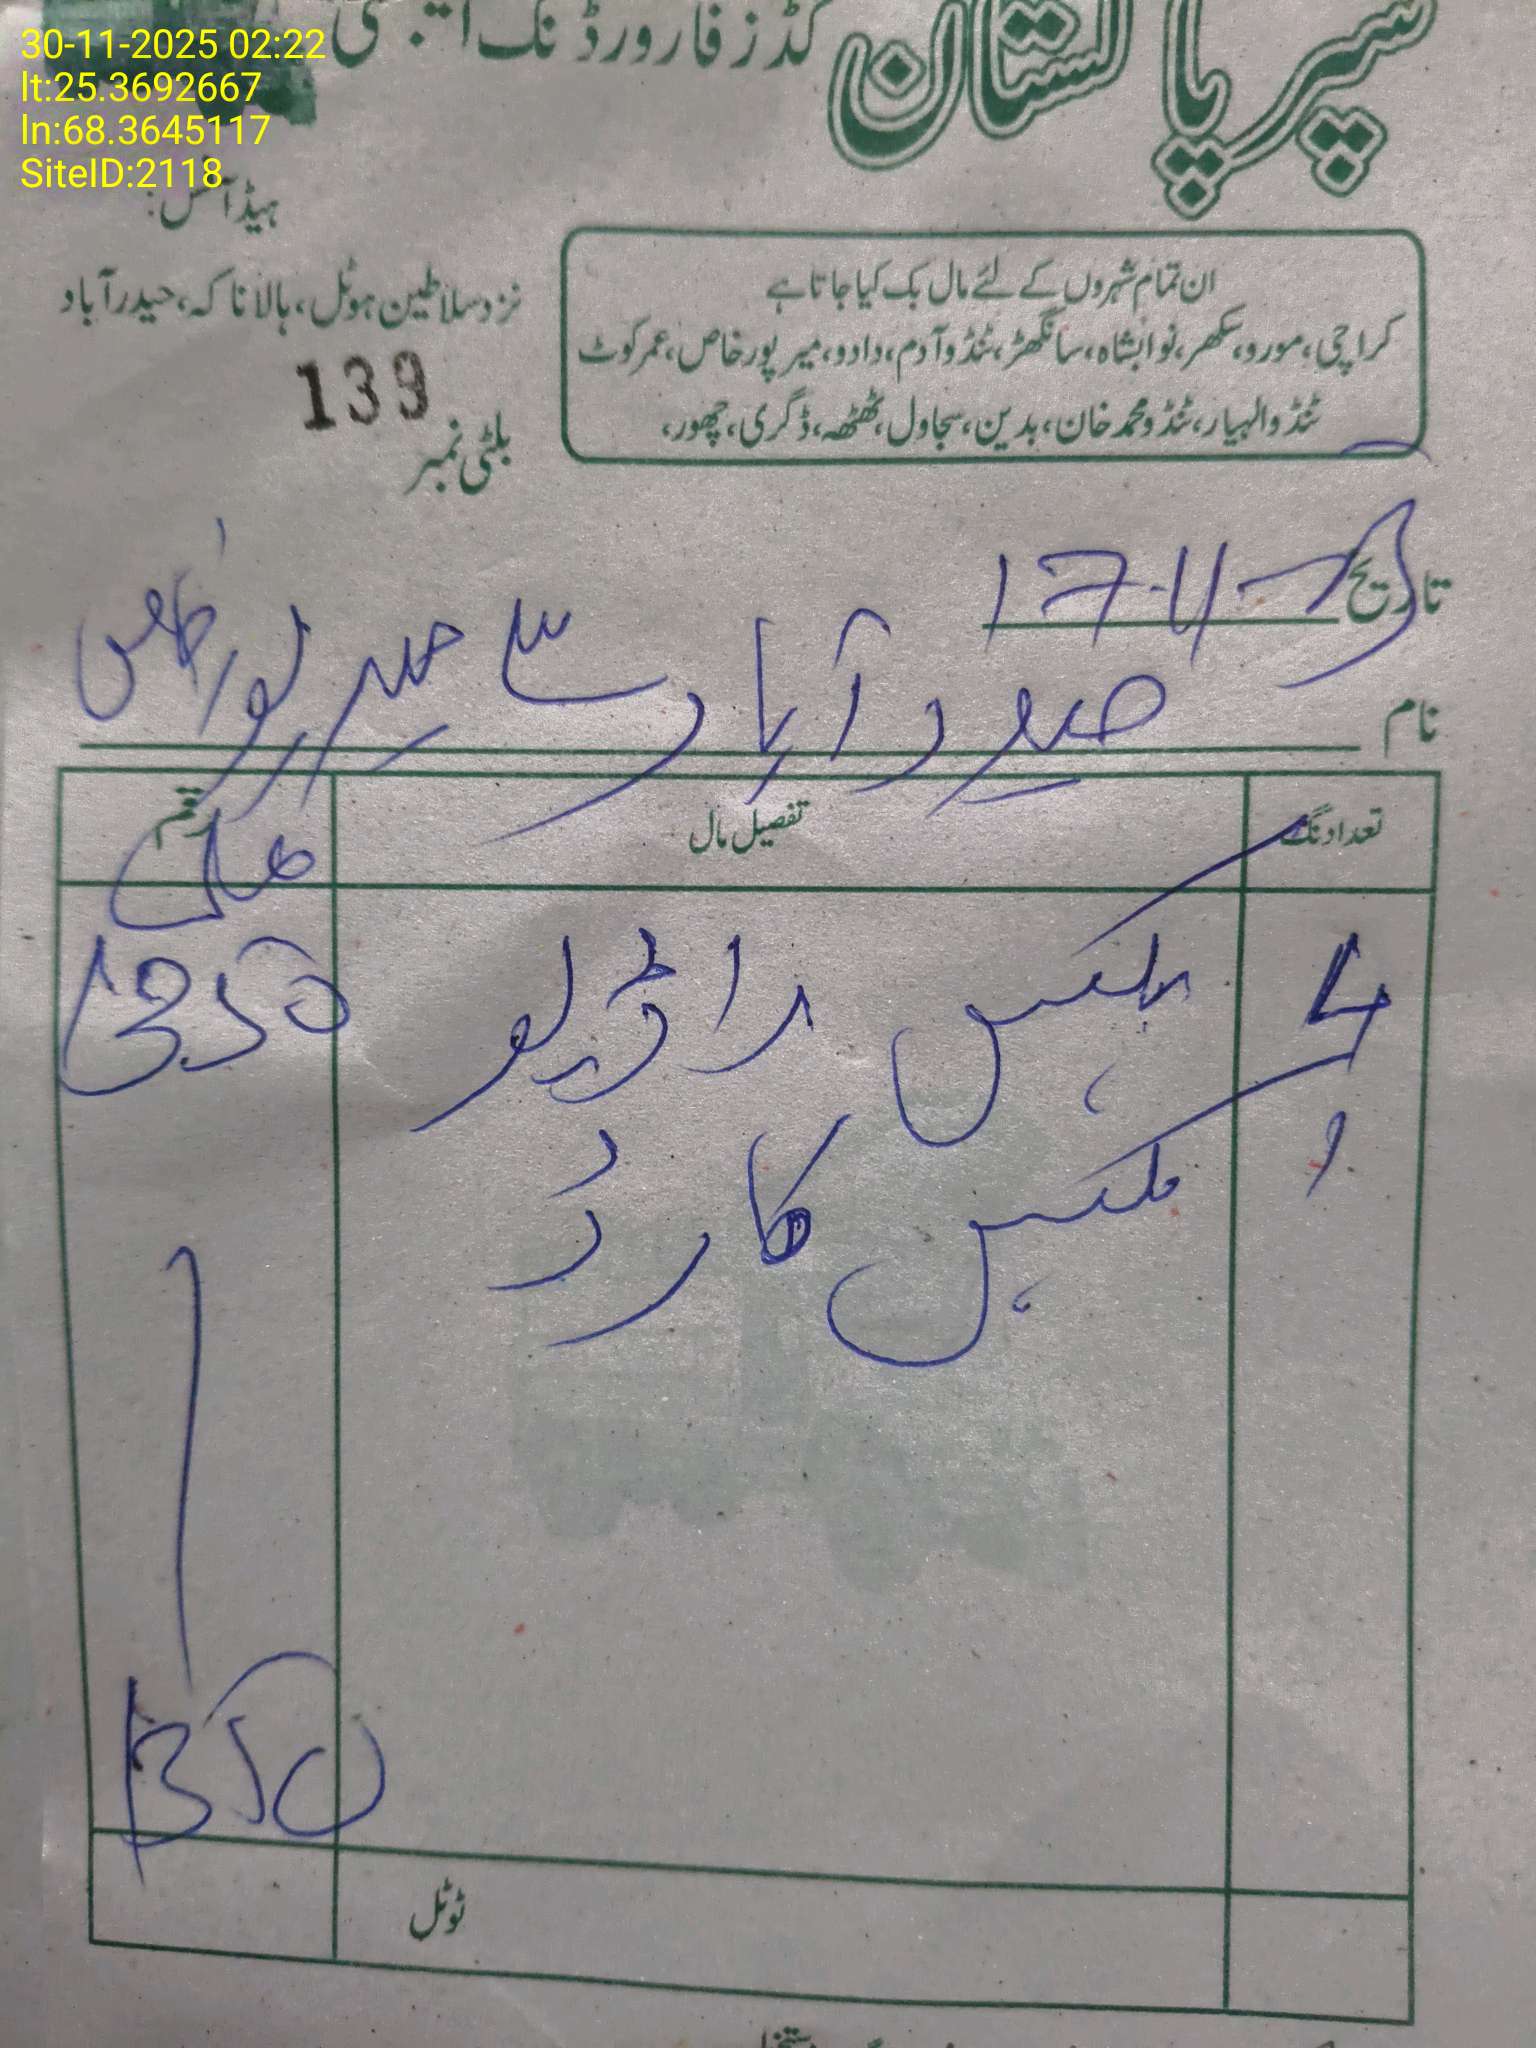 30-11-2025 02:22
lt:25.3692667
ln:68.3645117
SiteID:2118
سپر پاکستان گڈز فارورڈنگ ایجنسی
ہیڈ آفس:
نزد سلاطین ہوٹل، ہالا ناکہ، حیدرآباد
ان تمام شہروں کے لئے مال بک کیا جاتا ہے
کراچی، مورو، سکھر، نوابشاہ، سانگھڑ، ٹنڈوآدم، دادو، میرپورخاص، عمرکوٹ
ٹنڈوالہیار، ٹنڈومحمدخان، بدین، سجاول، ٹھٹھہ، ڈگری، چھور،
بلٹی نمبر 139
تاریخ 17-11-
نام حیدرآباد سے میرپورخاص
تعداد نگ تفصیل مال رقم
4 بکس راڈیلو 1350
1 بکس کارڈ
1350
ٹوٹل